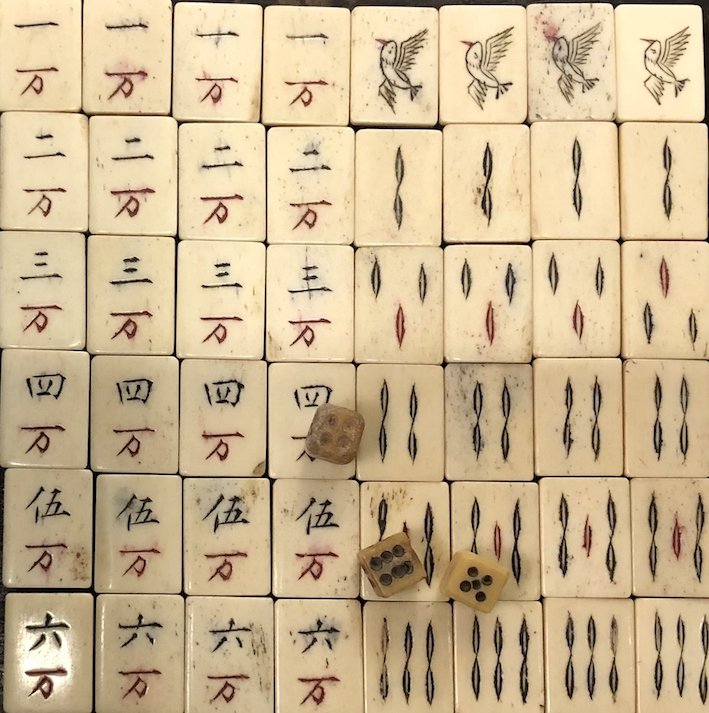 一 一 一 一
万 万 万 万
二 二 二 二
万 万 万 万
三 三 三 三
万 万 万 万
四 四 四 四
万 万 万
伍 伍 伍 伍
万 万 万 万
六 六 六 六
万 万 万 万